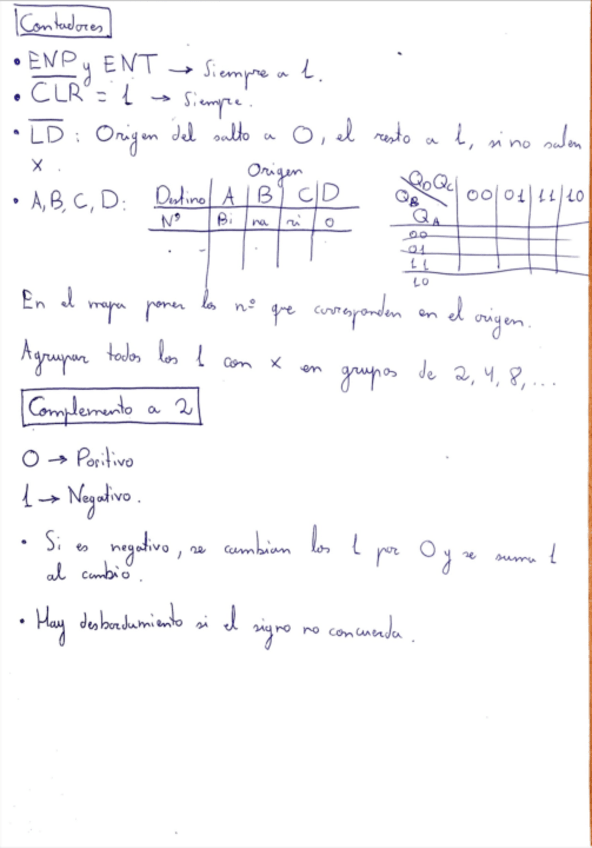 Contadores
• ENP y ENT → Siempre a 1.
• C̅L̅R̅ = 1 → Siempre.
• L̅D̅ : Origen del salto a 0, el resto a 1, si no salen
x.
Origen
• A, B, C, D: Destino A B C D
Nº Bi na ri o
QD QC 00 01 11 10
QB
QA
00
01
11
10
En el mapa poner los nº que corresponden en el origen.
Agrupar todos los 1 con x en grupos de 2, 4, 8, ...
Complemento a 2
0 → Positivo
1 → Negativo.
• Si es negativo, se cambian los 1 por 0 y se suma 1
al cambio.
• Hay desbordamiento si el signo no concuerda.